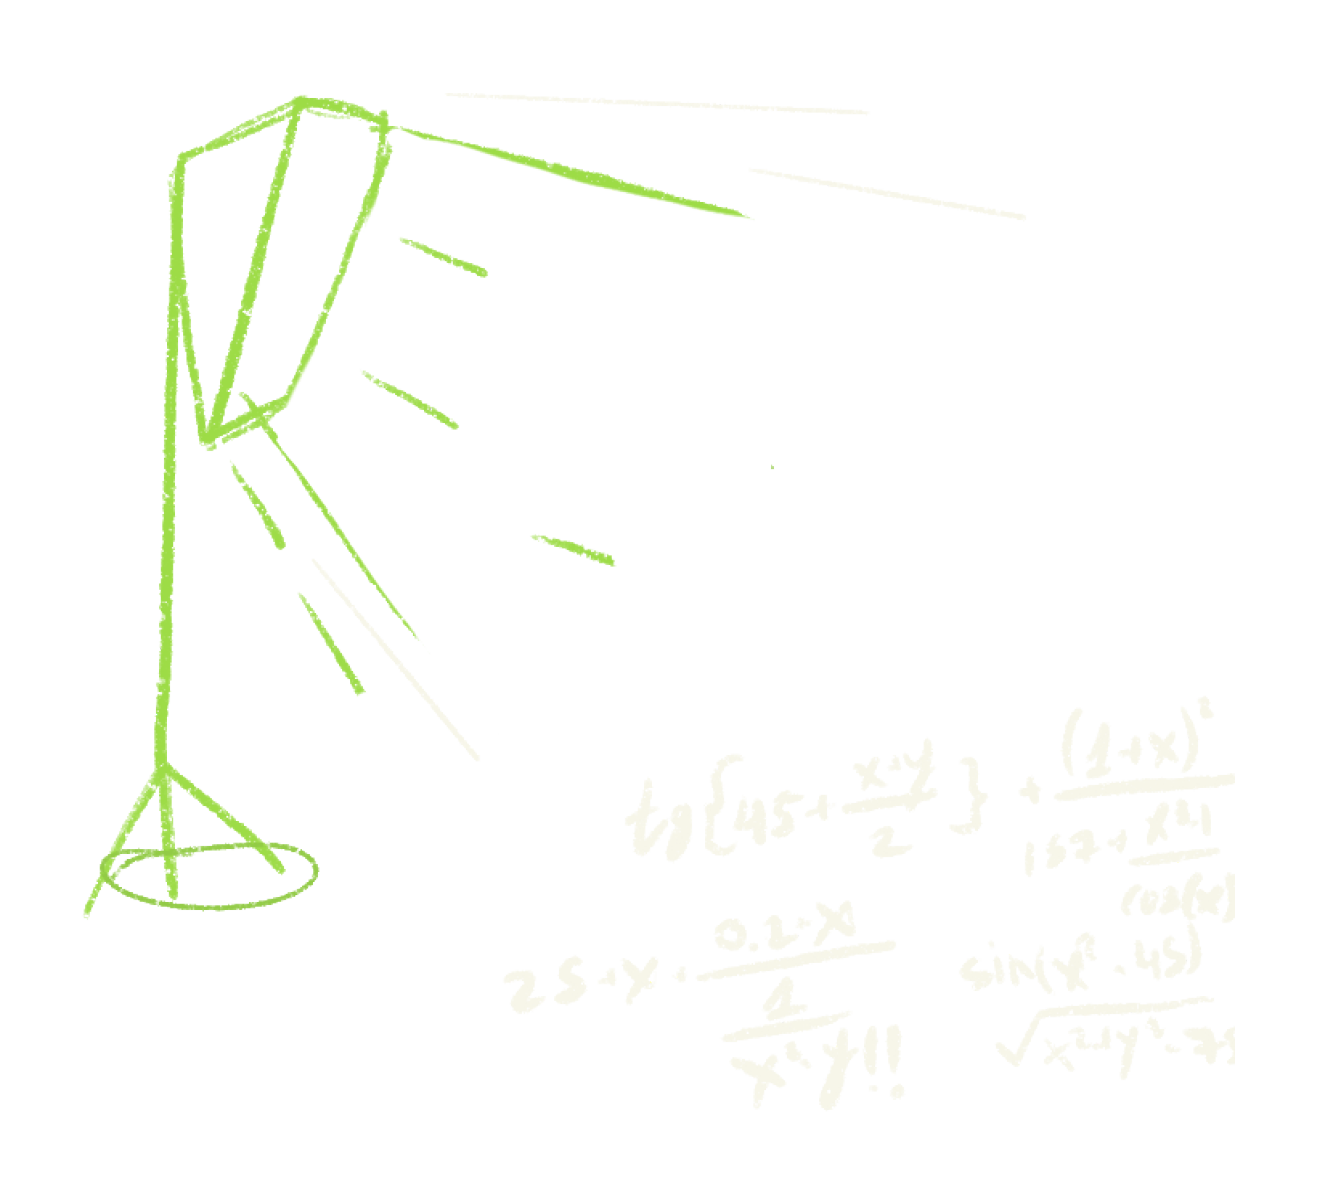 tg{45+\frac{x+y}{2}} + \frac{(1+x)^2}{157+\frac{x^2+1}{cos(x)}}
25+x+\frac{0.2+x}{\frac{1}{x^2+y!!}}
\frac{sin(x^2+45)}{\sqrt{x^2+y^3-75}}